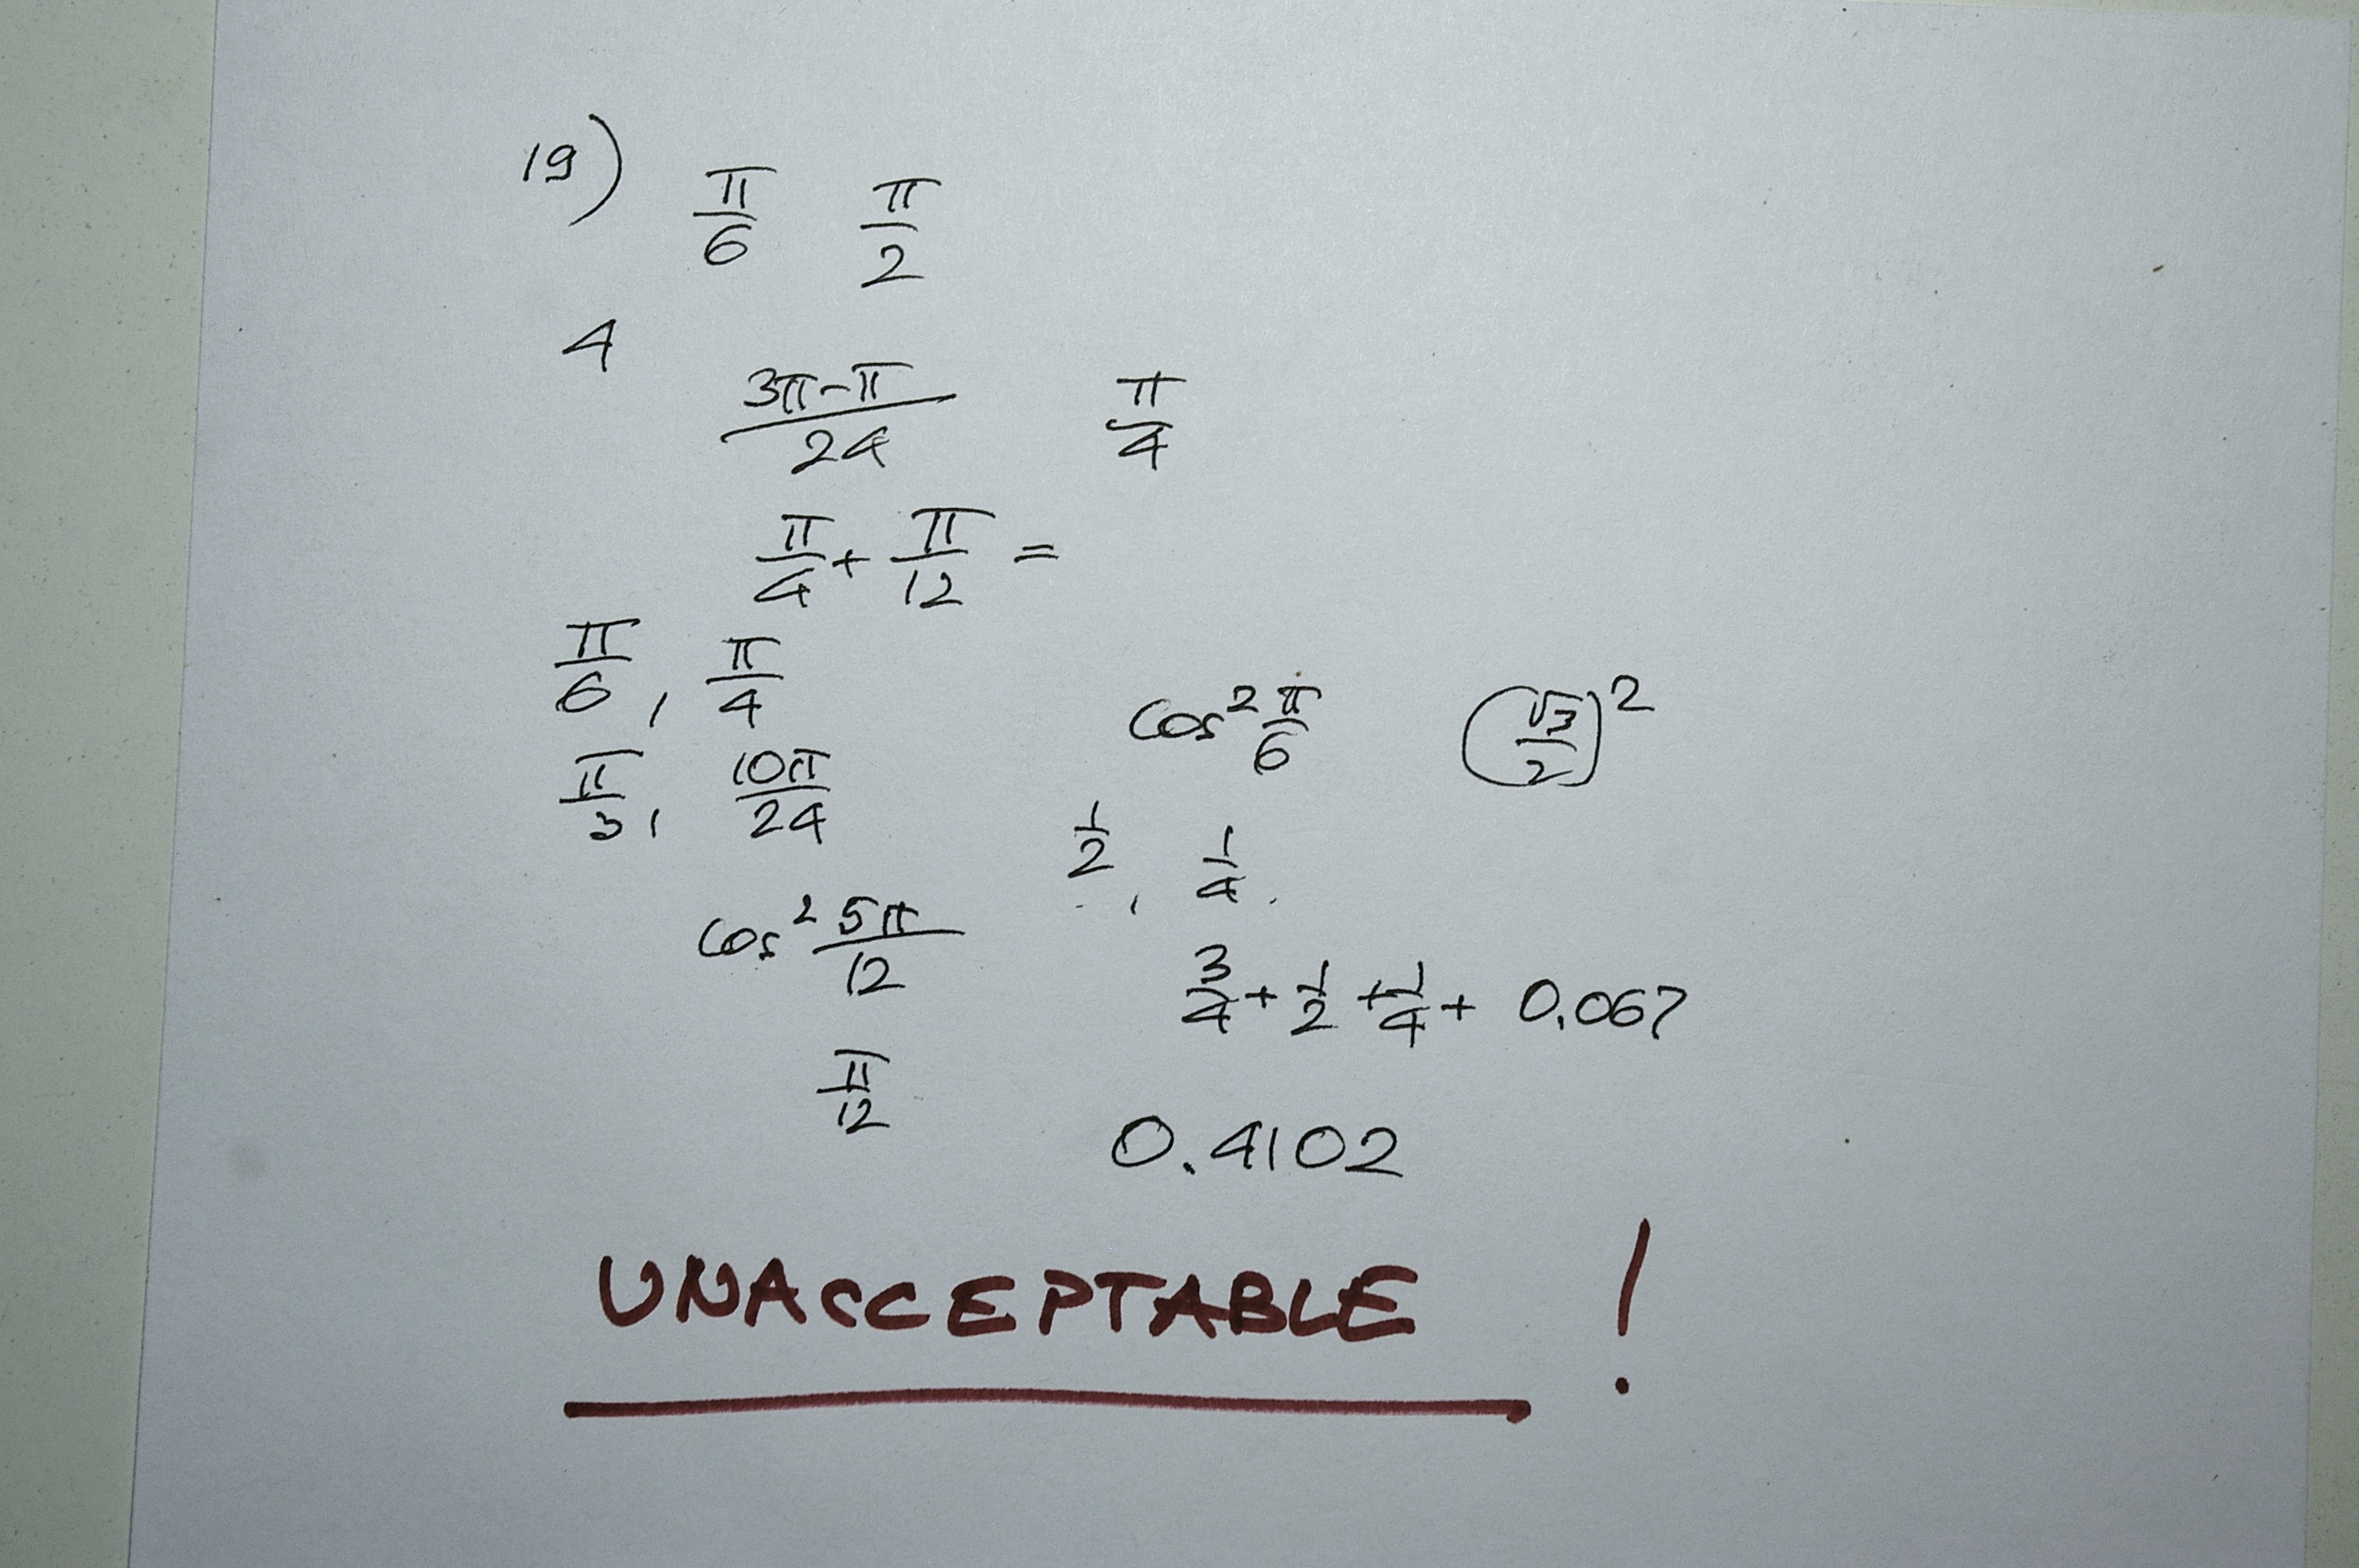 19) π/6 π/2
4
(3π-π)/24 π/4
π/4 + π/12 =
π/6, π/4
cos² π/6 (√3/2)²
π/3, 10π/24
1/2, 1/4.
cos² 5π/12
3/4 + 1/2 + 1/4 + 0.067
π/12
0.4102
UNACCEPTABLE !